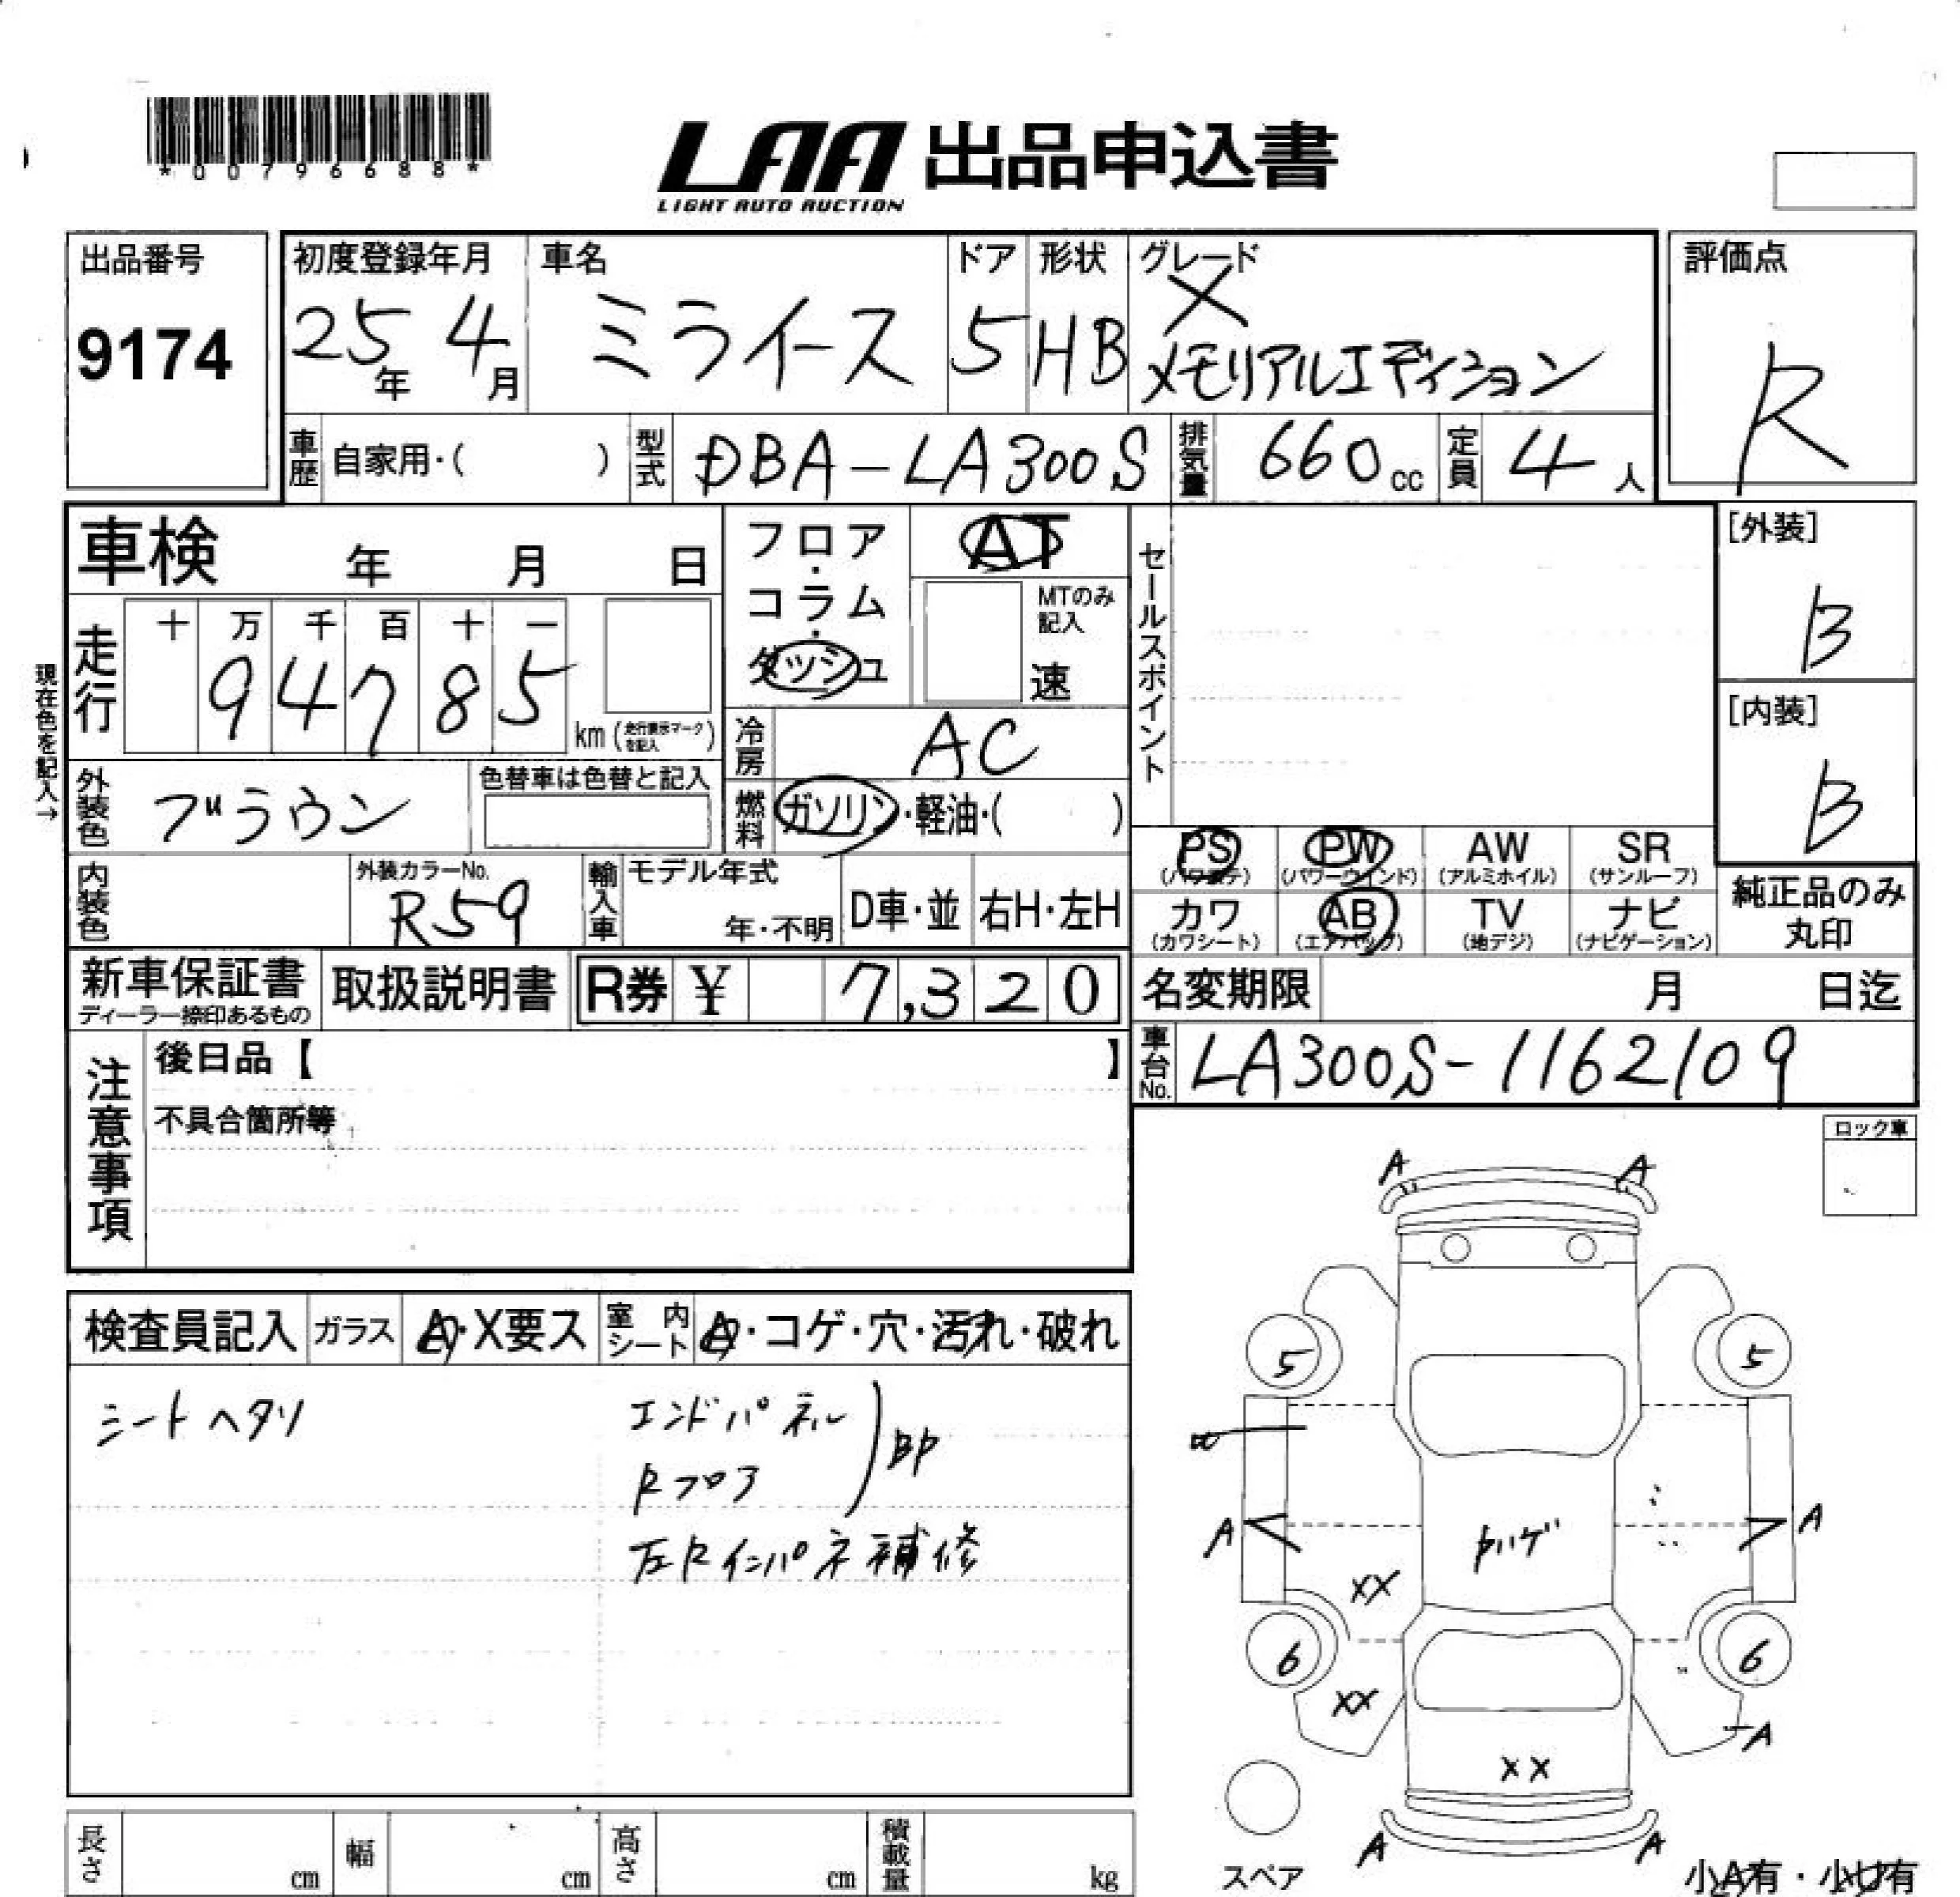 *00796688*
LAA 出品申込書
LIGHT AUTO AUCTION
出品番号
9174
初度登録年月
25年 4月
車名
ミライース
ドア
5
形状
HB
グレード
X
メモリアルエディション
評価点
R
車歴 自家用・( )
型式 DBA-LA300S
排気量 660cc
定員 4人
車検 年 月 日
フロア・コラム・ダッシュ
AT
MTのみ記入
速
セールスポイント
[外装]
B
[内装]
B
現在色を記入→
走行 十 万 千 百 十 一
94785
km(走行表示マークを記入)
冷房 AC
外装色 ブラウン
色替車は色替と記入
燃料 ガソリン・軽油・( )
内装色
外装カラーNo.
R59
輸入車 モデル年式
年・不明
D車・並
右H・左H
PS (パワステ)
PW (パワーウインド)
AW (アルミホイル)
SR (サンルーフ)
カワ (カワシート)
AB (エアバック)
TV (地デジ)
ナビ (ナビゲーション)
純正品のみ丸印
新車保証書
ディーラー捺印あるもの
取扱説明書
R券 ¥ 7,320
名変期限 月 日迄
車台No. LA300S-1162109
注意事項
後日品【 】
不具合箇所等
ロック車
検査員記入 ガラス A・X要ス 室内シート A・コゲ・穴・汚れ・破れ
シートヘタリ
エンドパネル
Rフロア
左Rインパネ補修
A A
5 5
A A
ハゲ
XX
6 6
XX
A
XX
A A
スペア
小A有・小U有
長さ cm
幅 cm
高さ cm
積載量 kg